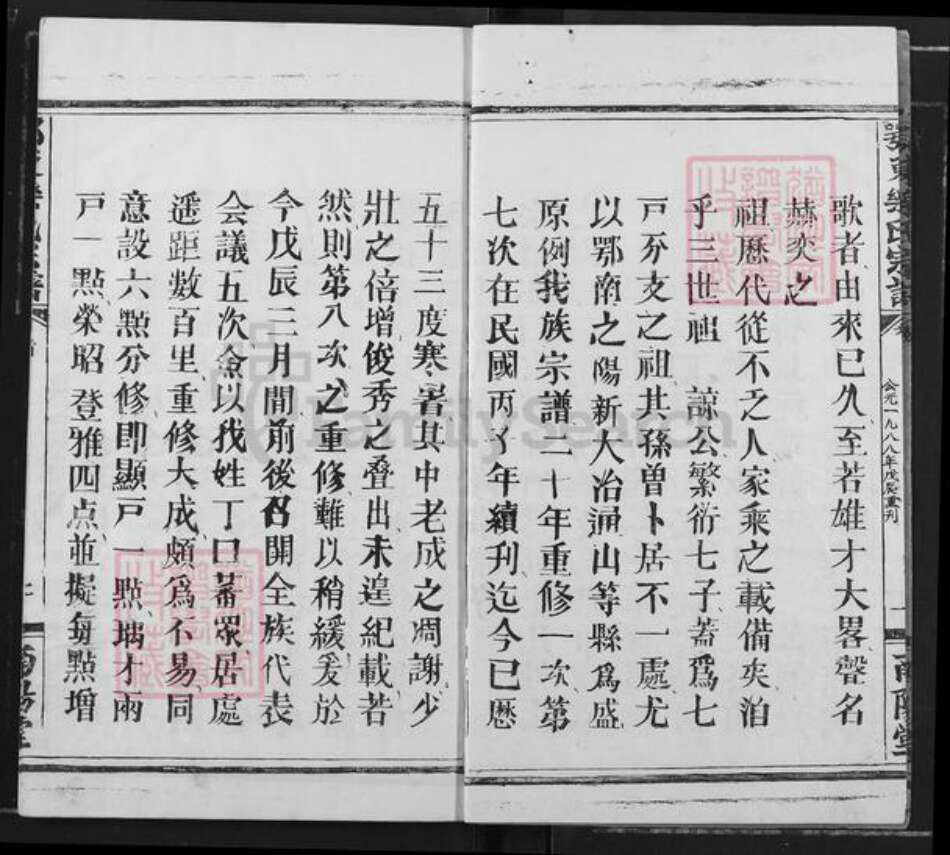 鄂東樂氏宗譜
公元一九八八年戊辰重刊
一
南陽堂
歌者由來已久至若雄才大畧聲名
赫奕之
祖歷代從不乏人家乘之載備矣洎
乎三世祖 諒公繁衍七子蓋爲七
戸分支之祖其孫曾卜居不一處尤
以鄂南之陽新大冶通山等縣爲盛
原例我族宗譜二十年重修一次第
七次在民國丙子年續刋迄今已歷
五十三度寒暑其中老成之凋謝少
壯之倍增俊秀之叠出未遑紀載若
然則第八次之重修難以稍緩爰於
今戊辰三月間前後召開全族代表
会議五次僉以我姓丁口蕃眾居處
遥距數百里重修大成頗爲不易同
意設六點分修即顯戸一點瑀才兩
戸一點榮昭登雅四点並擬每點增
FamilySearch